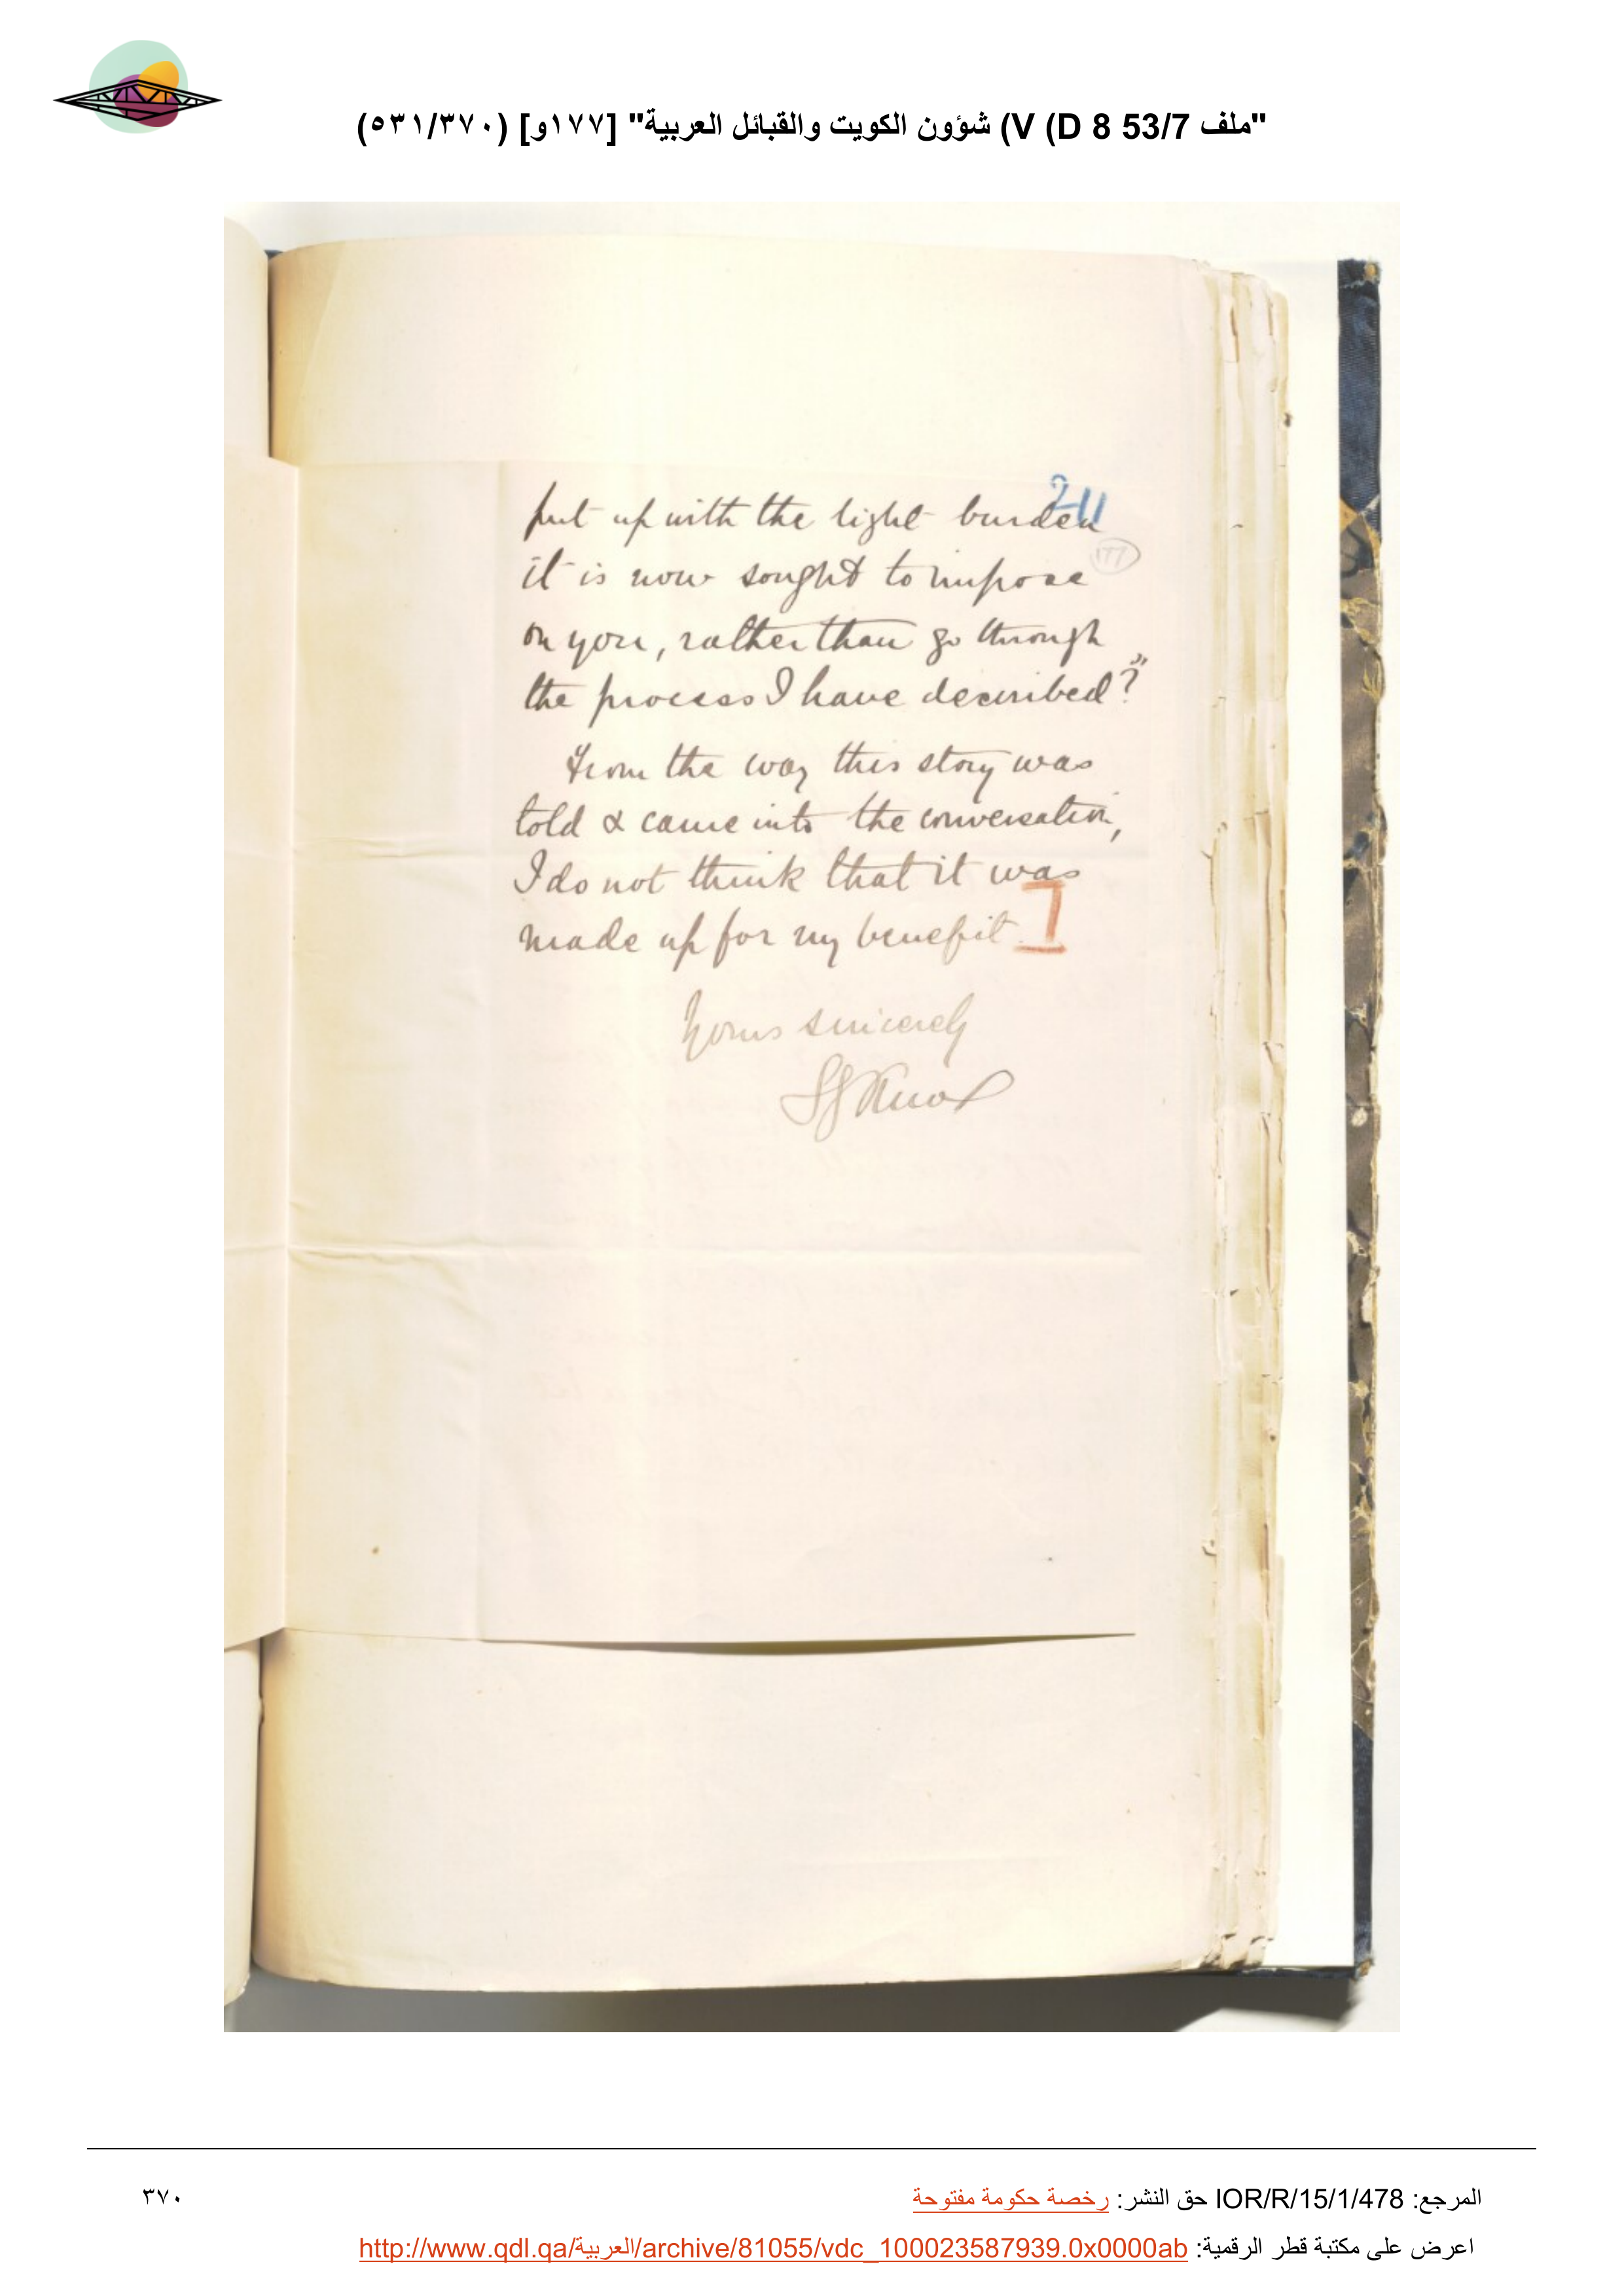 "ملف 53/7 V (D 8) شؤون الكويت والقبائل العربية" [١٧٧و] (٥٣١/٣٧٠)
211
put up with the light burden
177
it is now sought to impose
on you, rather than go through
the process I have described?"
From the way this story was
told & came into the conversation,
I do not think that it was
made up for my benefit.]
Yours sincerely
SGKnox
المرجع: IOR/R/15/1/478 حق النشر: رخصة حكومة مفتوحة
٣٧٠
اعرض على مكتبة قطر الرقمية: http://www.qdl.qa/العربية/archive/81055/vdc_100023587939.0x0000ab